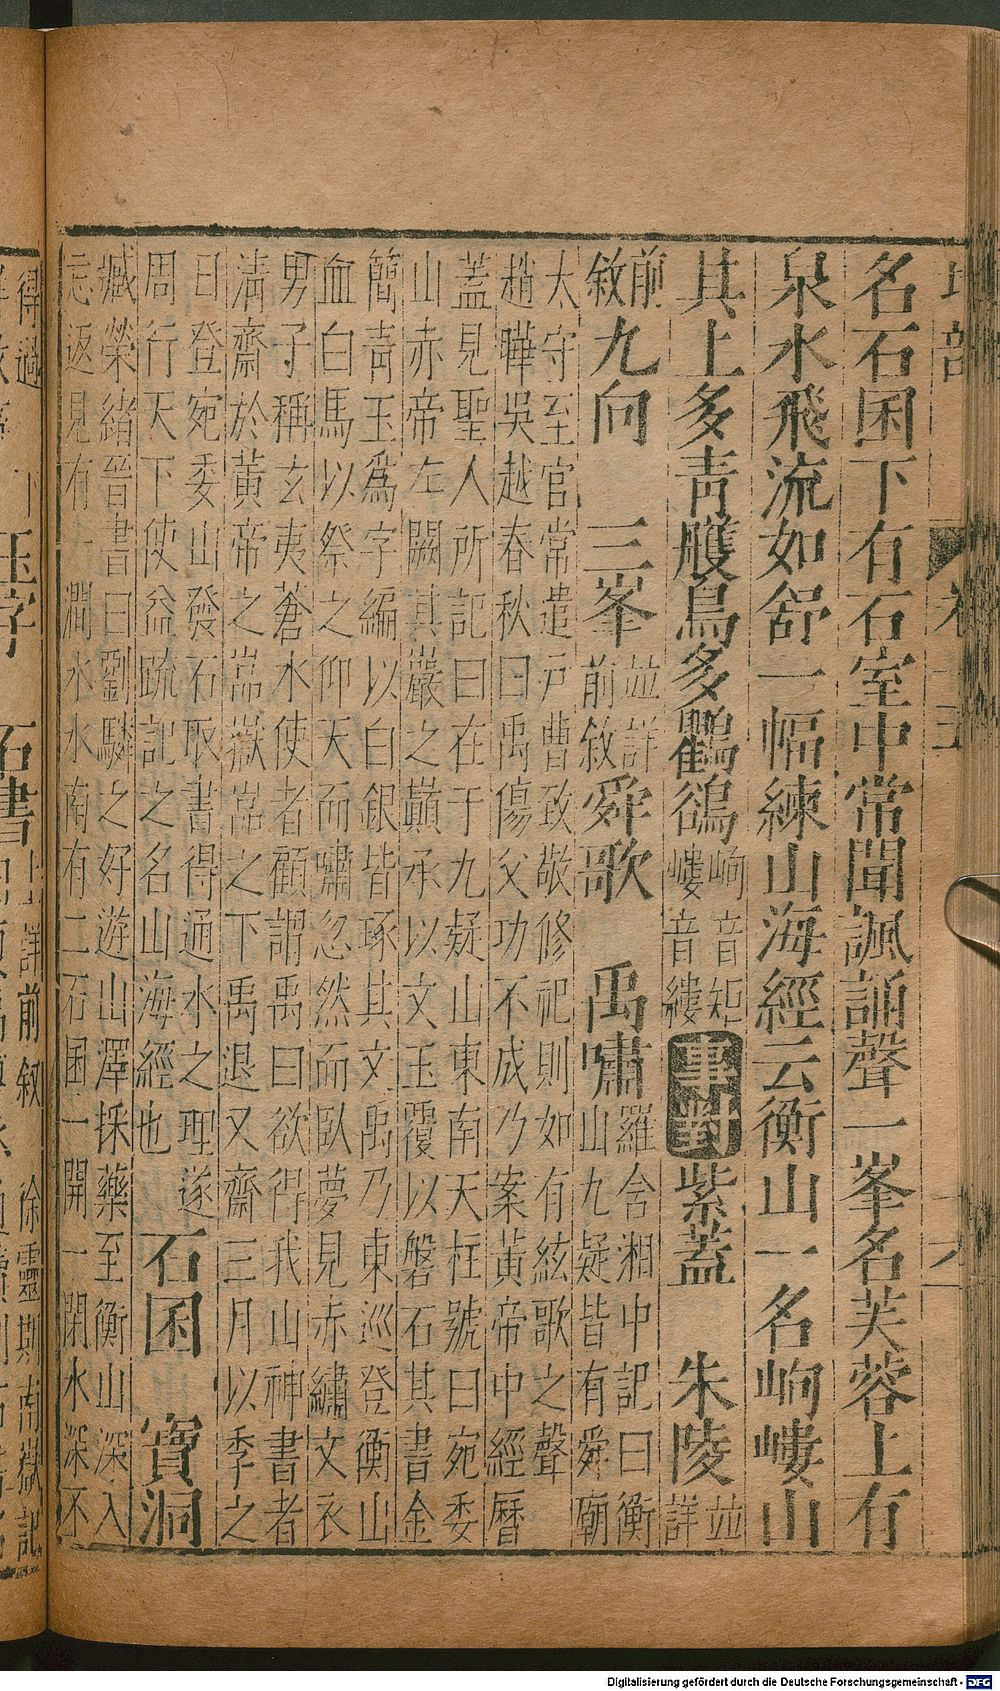 名石囷下有石室中常聞諷誦聲一峯名芙蓉上有
泉水飛流如舒一幅練山海經云衡山一名岣嶁山
其上多青雘鳥多鸜鵒 岣音矩
嶁音縷
事對 紫蓋 朱陵 並
詳
前
敘
九向 三峯 並詳
前敘
舜歌 禹嘯 羅含湘中記曰衡
山九疑皆有舜廟
太守至官常遣戸曹致敬修祀則如有絃歌之聲
趙曄吳越春秋曰禹傷父功不成乃案黃帝中經曆
蓋見聖人所記曰在于九疑山東南天柱號曰宛委
山赤帝左闕其巖之巔承以文玉覆以磐石其書金
簡青玉爲字編以白銀皆琢其文禹乃東巡登衡山
血白馬以祭之仰天而嘯忽然而臥夢見赤繡文衣
男子稱玄夷蒼水使者顧謂禹曰欲得我山神書者
淸齋於黃帝之嵓嶽嵓之下禹退又齋三月以季之
日登宛委山發石取書得通水之理遂
周行天下使益疏記之名山海經也
石囷 寶洞
臧榮緒晉書曰劉驎之好遊山澤採藥至衡山深入
忘返見有一澗水水南有二石囷一開一閉水深不
得過
玉字 石書
詳前敘 徐靈期南嶽記
Digitalisierung gefördert durch die Deutsche Forschungsgemeinschaft - DFG